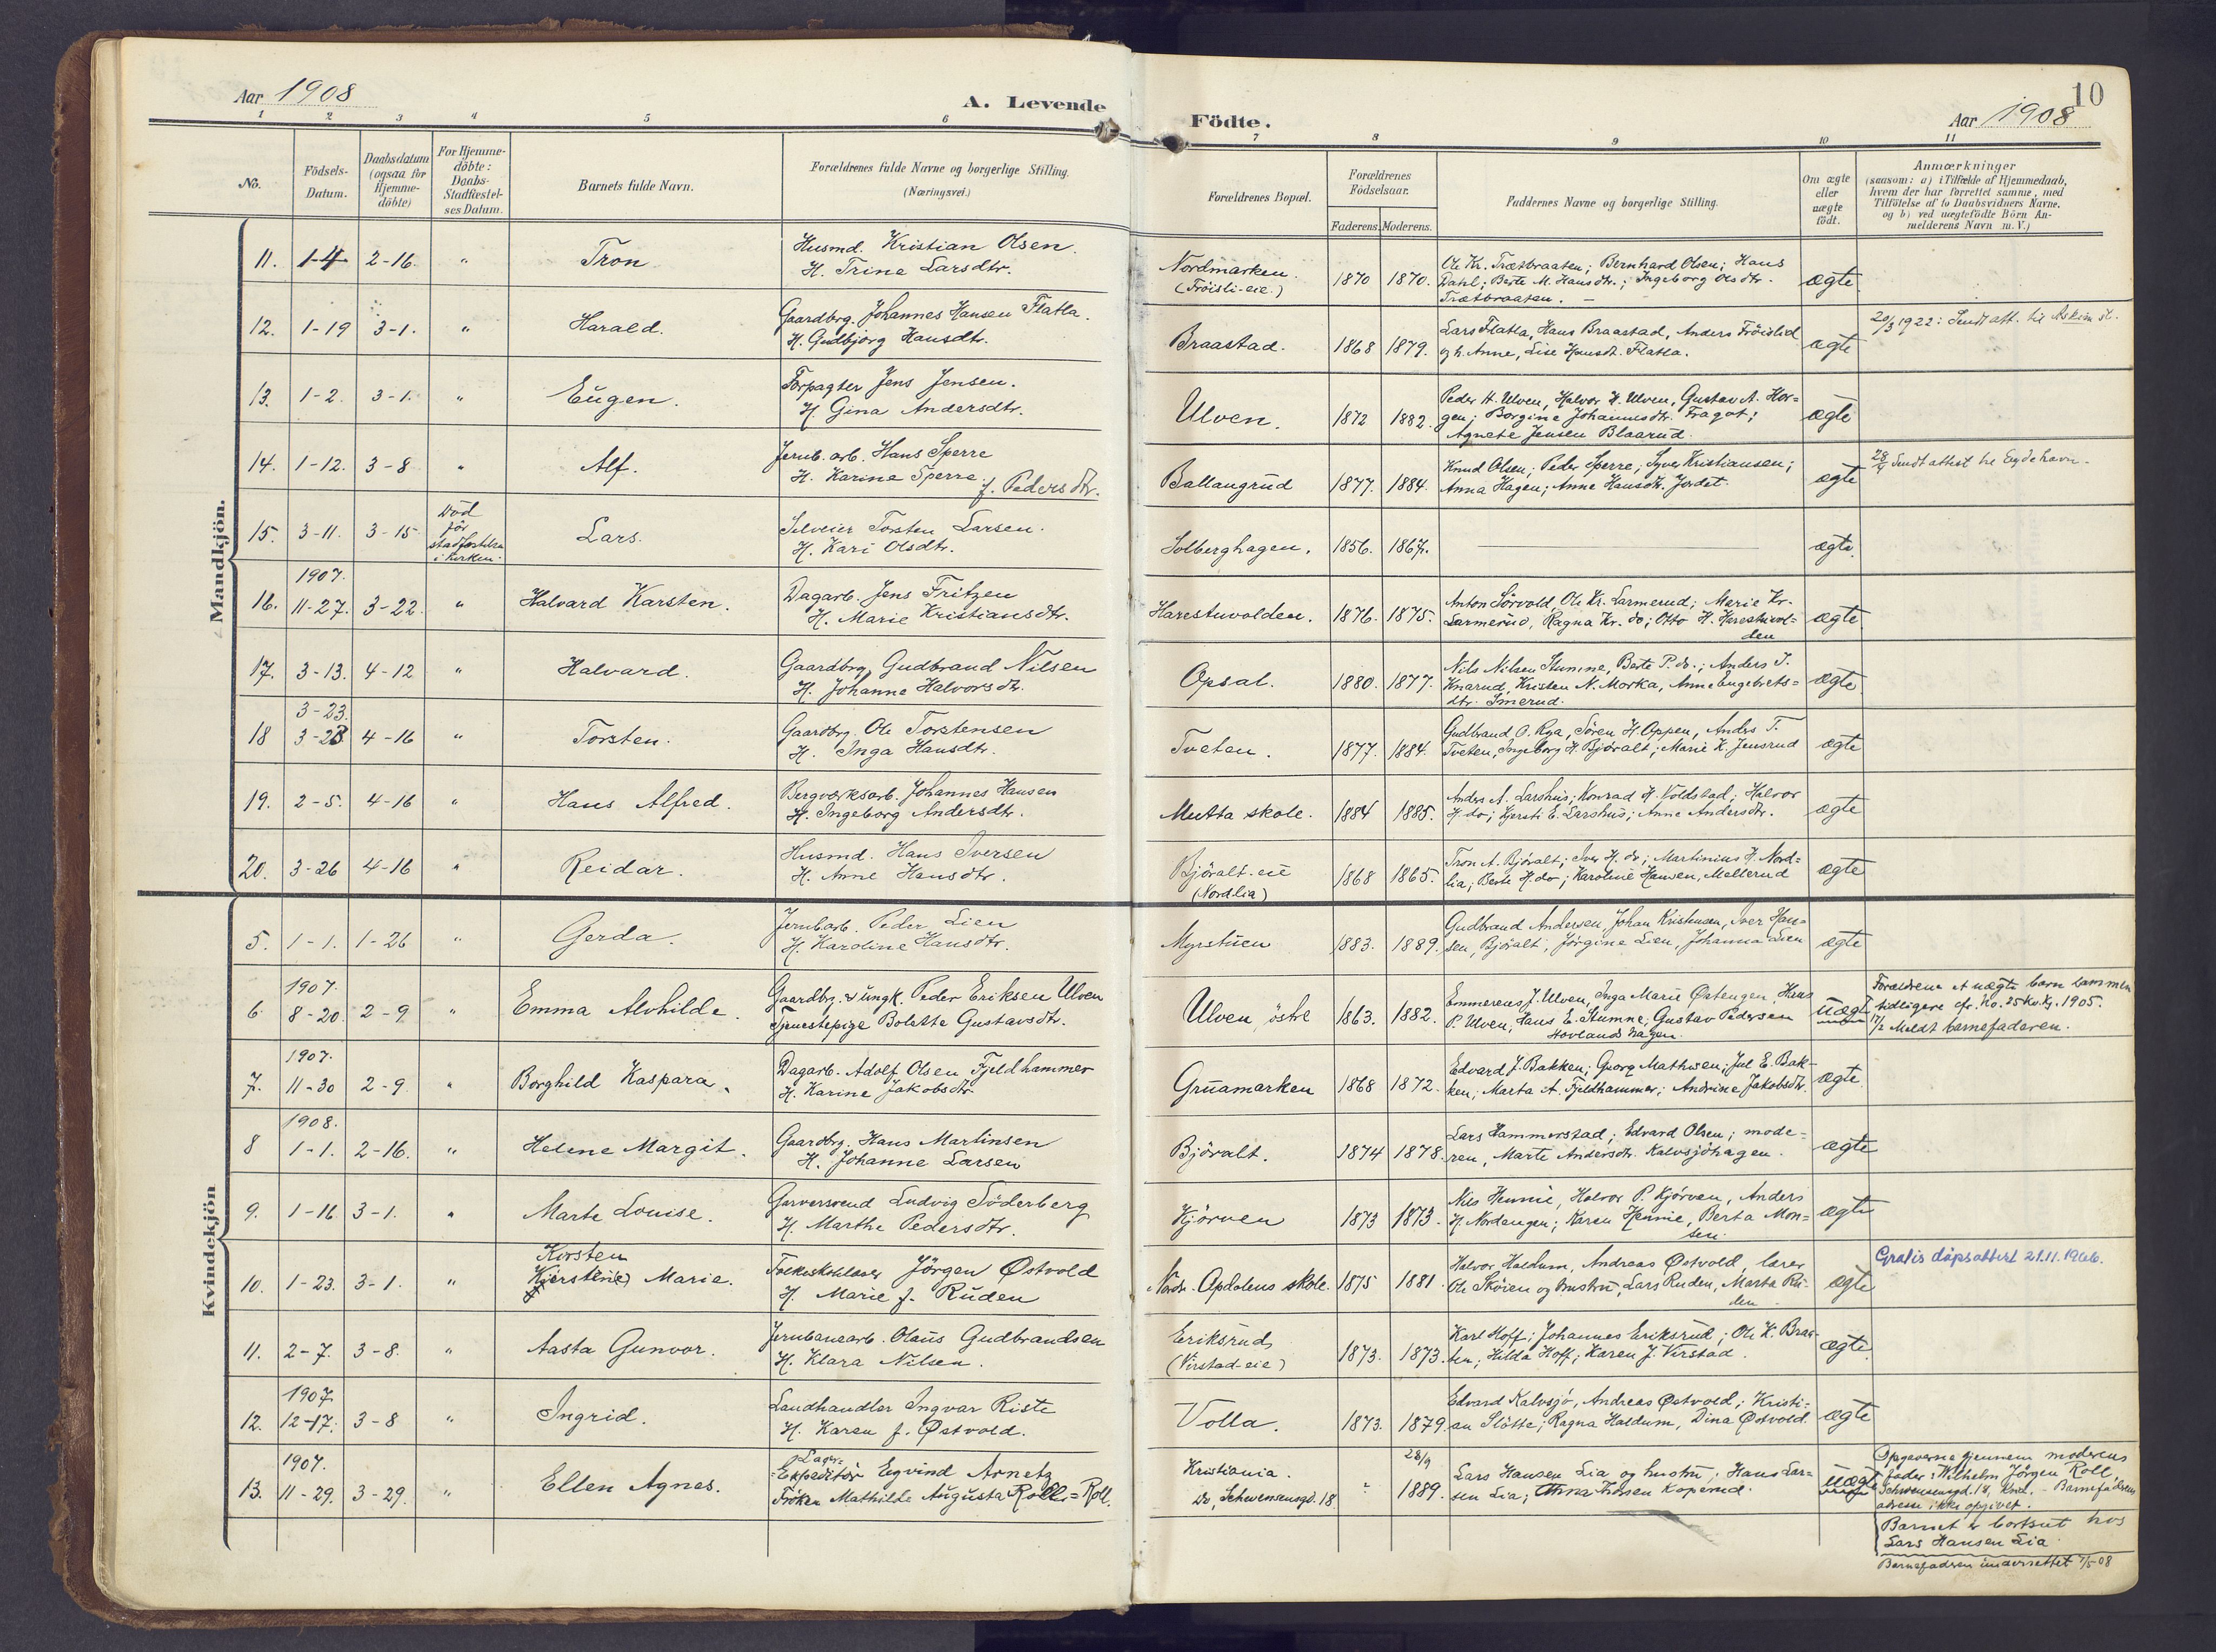 Aar 1908
A. Levende
Födte.
Aar 1908
10
1 2 3 4 5 6 7 8 9 10 11
No.
Födsels-
Datum.
Daabsdatum
(ogsaa for
Hjemme-
döbte)
For Hjemme-
döbte:
Daabs-
Stadfæstel-
ses Datum.
Barnets fulde Navn.
Forældrenes fulde Navne og borgerlige Stilling.
(Næringsvei.)
Forældrenes Bopæl.
Forældrenes
Födselsaar.
Faderens. Moderens.
Faddernes Navne og borgerlige Stilling.
Om ægte
eller
uægte
födt.
Anmærkninger
(saasom: a) i Tilfælde af Hjemmedaab,
hvem der har forrettet samme, med
Tilföielse af to Daabsvidners Navne,
og b) ved uægtefödte Börn An-
melderens Navn m. V.)
Mandkjön.
11. 1-4 2-16. " Tron
Husmd. Kristian Olsen.
H. Trine Larsdtr.
Nordmarken.
(Fröisli-eie.)
1870 1870.
Ole Kr. Trætbraaten; Bernhard Olsen; Hans
Dahl; Berte M. Hansdtr.; Ingeborg Olsdtr.
Trætbraaten. —
ægte
12. 1-19 3-1. " Harald.
Gaardbrg. Johannes Hansen Flatla.
H. Gudbjörg Hansdtr.
Braastad. 1868 1879.
Lars Flatla, Hans Braastad, Anders Fröislid
og h. Anne, Lise Hansdt. Flatla.
ægte
20/3 1922: Sendt att. til Askim st.
13. 1-2. 3-1. " Eugen.
Forpagter Jens Jensen.
H. Gina Andersdtr.
Ulven. 1872 1882.
Peder H. Ulven, Halvor H. Ulven, Gustav A. Hor=
gen; Borgine Johannesdtr. Fragot;
Agnete Jensen Blaarud.
ægte
14. 1-12. 3-8 " Alf.
Jernb. arb. Hans Sperre
H. Karine Sperre f. Pedersdtr.
Ballangrud 1877. 1884.
Knud Olsen; Peder Sperre; Syver Kristiansen;
Anna Hagen; Anne Hansdtr. Jordet.
ægte
Sendt attest til Eydehavn.
15. 3-11. 3-15
Död
för
stadfæstelse
i kirken.
Lars.
Selveier Torsten Larsen.
H. Kari Olsdtr.
Solberghagen. 1856. 1867.
ægte.
1907.
16. 11-27. 3-22. " Halvard Karsten.
Dagarb. Jens Fritzen
H. Marie Kristiansdtr.
Harestuvolden. 1876. 1875.
Anton Sörvold, Ole Kr. Larmerud; Marie Kr.
Larmerud, Ragna Kr. do; Otto H. Harestuvol=
den
ægte
17. 3-13. 4-12 " Halvard.
Gaardbrg. Gudbrand Nilsen
H. Johanne Halvorsdtr.
Opsal. 1880. 1877.
Nils Nilsen Stumne, Berte P. do.; Anders J.
Knarud, Kristen N. Morka, Anne Engebrets=
dtr. Smerud.
ægte
3-23.
18 3-28. 4-16 " Torsten.
Gaardbrg. Ole Torstensen
H. Inga Hansdtr.
Tveten. 1877. 1884.
Gudbrand O. Rya, Sören H. Oppen, Anders T.
Tveten, Ingeborg H. Björalt; Marie K. Jensrud
ægte
19. 2-5. 4-16 " Hans Alfred.
Bergværksarb. Johannes Hansen
H. Ingeborg Andersdtr.
Mutta skole. 1884 1885.
Anders A. Larshus; Konrad H. Voldstad; Halvor
H. do; Kjersti E. Larshus; Anne Andersdtr.
ægte
20. 3-26 4-16 " Reidar.
Husmd. Hans Iversen
H. Anne Hansdtr.
Björalt-eie
(Nordlia)
1868 1865.
Tron A. Björalt; Iver H. do; Martinius H. Nord=
lia; Berte H. do; Karoline Hansen, Mellerud
ægte
Kvindekjön
5. 1-1. 1-26 " Gerda.
Jernb.arb. Peder Lien
H. Karoline Hansdtr.
Myrstuen 1883. 1889.
Gudbrand Andersen, Johan Kristensen, Iver Han=
sen, Björalt, Jörgine Lien, Johanna Lien
ægte
1907.
6. 8-20. 2-9 " Emma Alvhilde.
Gaardbrg. & ungk. Peder Eriksen Ulven
Tjenestepige Bolette Gustavsdtr.
Ulven, östre 1863. 1882.
Emmerens J. Ulven, Inga Marie Østengen, Hans
P. Ulven, Hans E. Stumne, Gustav Pedersen
Hovlandshagen.
uægte
Forældrene et uægte barn sammen
tidligere cfr. No. 25 Kv.kj. 1905.
17/2 Meldt barnefaderen.
1907.
7. 11-30 2-9. " Borghild Kaspara.
Dagarb. Adolf Olsen Fjeldhammer
H. Karine Jakobsdtr.
Gruamarken 1868 1872.
Edvard J. Bakken; Georg Mathisen; Jul E. Bak-
ken; Marta A. Fjeldhammer; Andrine Jakobsdtr.
ægte
1908.
8 1-1. 2-16. " Helene Margit.
Gaardbrg. Hans Martinsen
H. Johanne Larsen
Björalt. 1874 1878.
Lars Hammerstad; Edvard Olsen; mode=
ren, Marte Andersdtr. Kalvsjöhagen.
ægte
9. 1-16 3-1. " Marte Louise.
Garversvend Ludvig Söderberg
H. Marthe Pedersdtr.
Kjörven 1873 1873.
Nils Hennie, Halvor P. Kjörven, Anders
H. Nordengen; Karen Hennie, Berta Mon=
sen.
ægte
Kirsten
10. 1-23. 3-1. " Kjerstine Marie.
Folkeskolelærer Jörgen Østvold
H. Marie f. Ruden
Nordr. Opdalens skole. 1875 1881
Halvor Haldum, Andreas Østvold, lærer
Ole Skören og hustru, Lars Ruden, Marta Ru-
den.
ægte
Gratis dåpsattest 21.11.1966.
11. 2-7. 3-8. " Aasta Gunvor.
Jernbanearb. Olaus Gudbrandsen
H. Klara Nilsen.
Eriksrud
(Virstad-eie)
1873. 1873.
Karl Hoff; Johannes Eriksrud; Ole K. Braa-
ten; Hilda Hoff; Karen J. Virstad.
ægte
1907
12. 12-17. 3-8 " Ingrid.
Landhandler Ingvar Riste
H. Karen f. Østvold.
Volla. 1873. 1879.
Edvard Kalvsjö, Andreas Østvold; Kristi=
an Slötte; Ragna Haldum, Dina Østvold
ægte
1907.
13. 11-29. 3-29. " Ellen Agnes.
Lager=
=Expeditör Eyvind Arnetz
Fröken Mathilde Augusta Rolls = Roll.
Kristiania.
do, Schwensensgd. 18
" 28/9
1889.
Lars Hansen Lia og hustru; Hans Lar=
sen Lia; Anna Hansen Koperud.
uægte
Opgaverne gjennem moderens
fader: Wilhelm Jörgen Roll,
Schwensensgd. 18, Kria. - Barnefaderens
adresse ikke opgivet.
Barnet er bortsat hos
Lars Hansen Lia.
Barnefadren underrettet 7/5-08